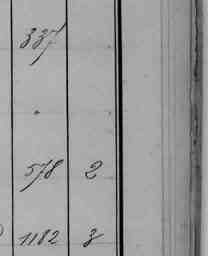 337
578 2
1182 3